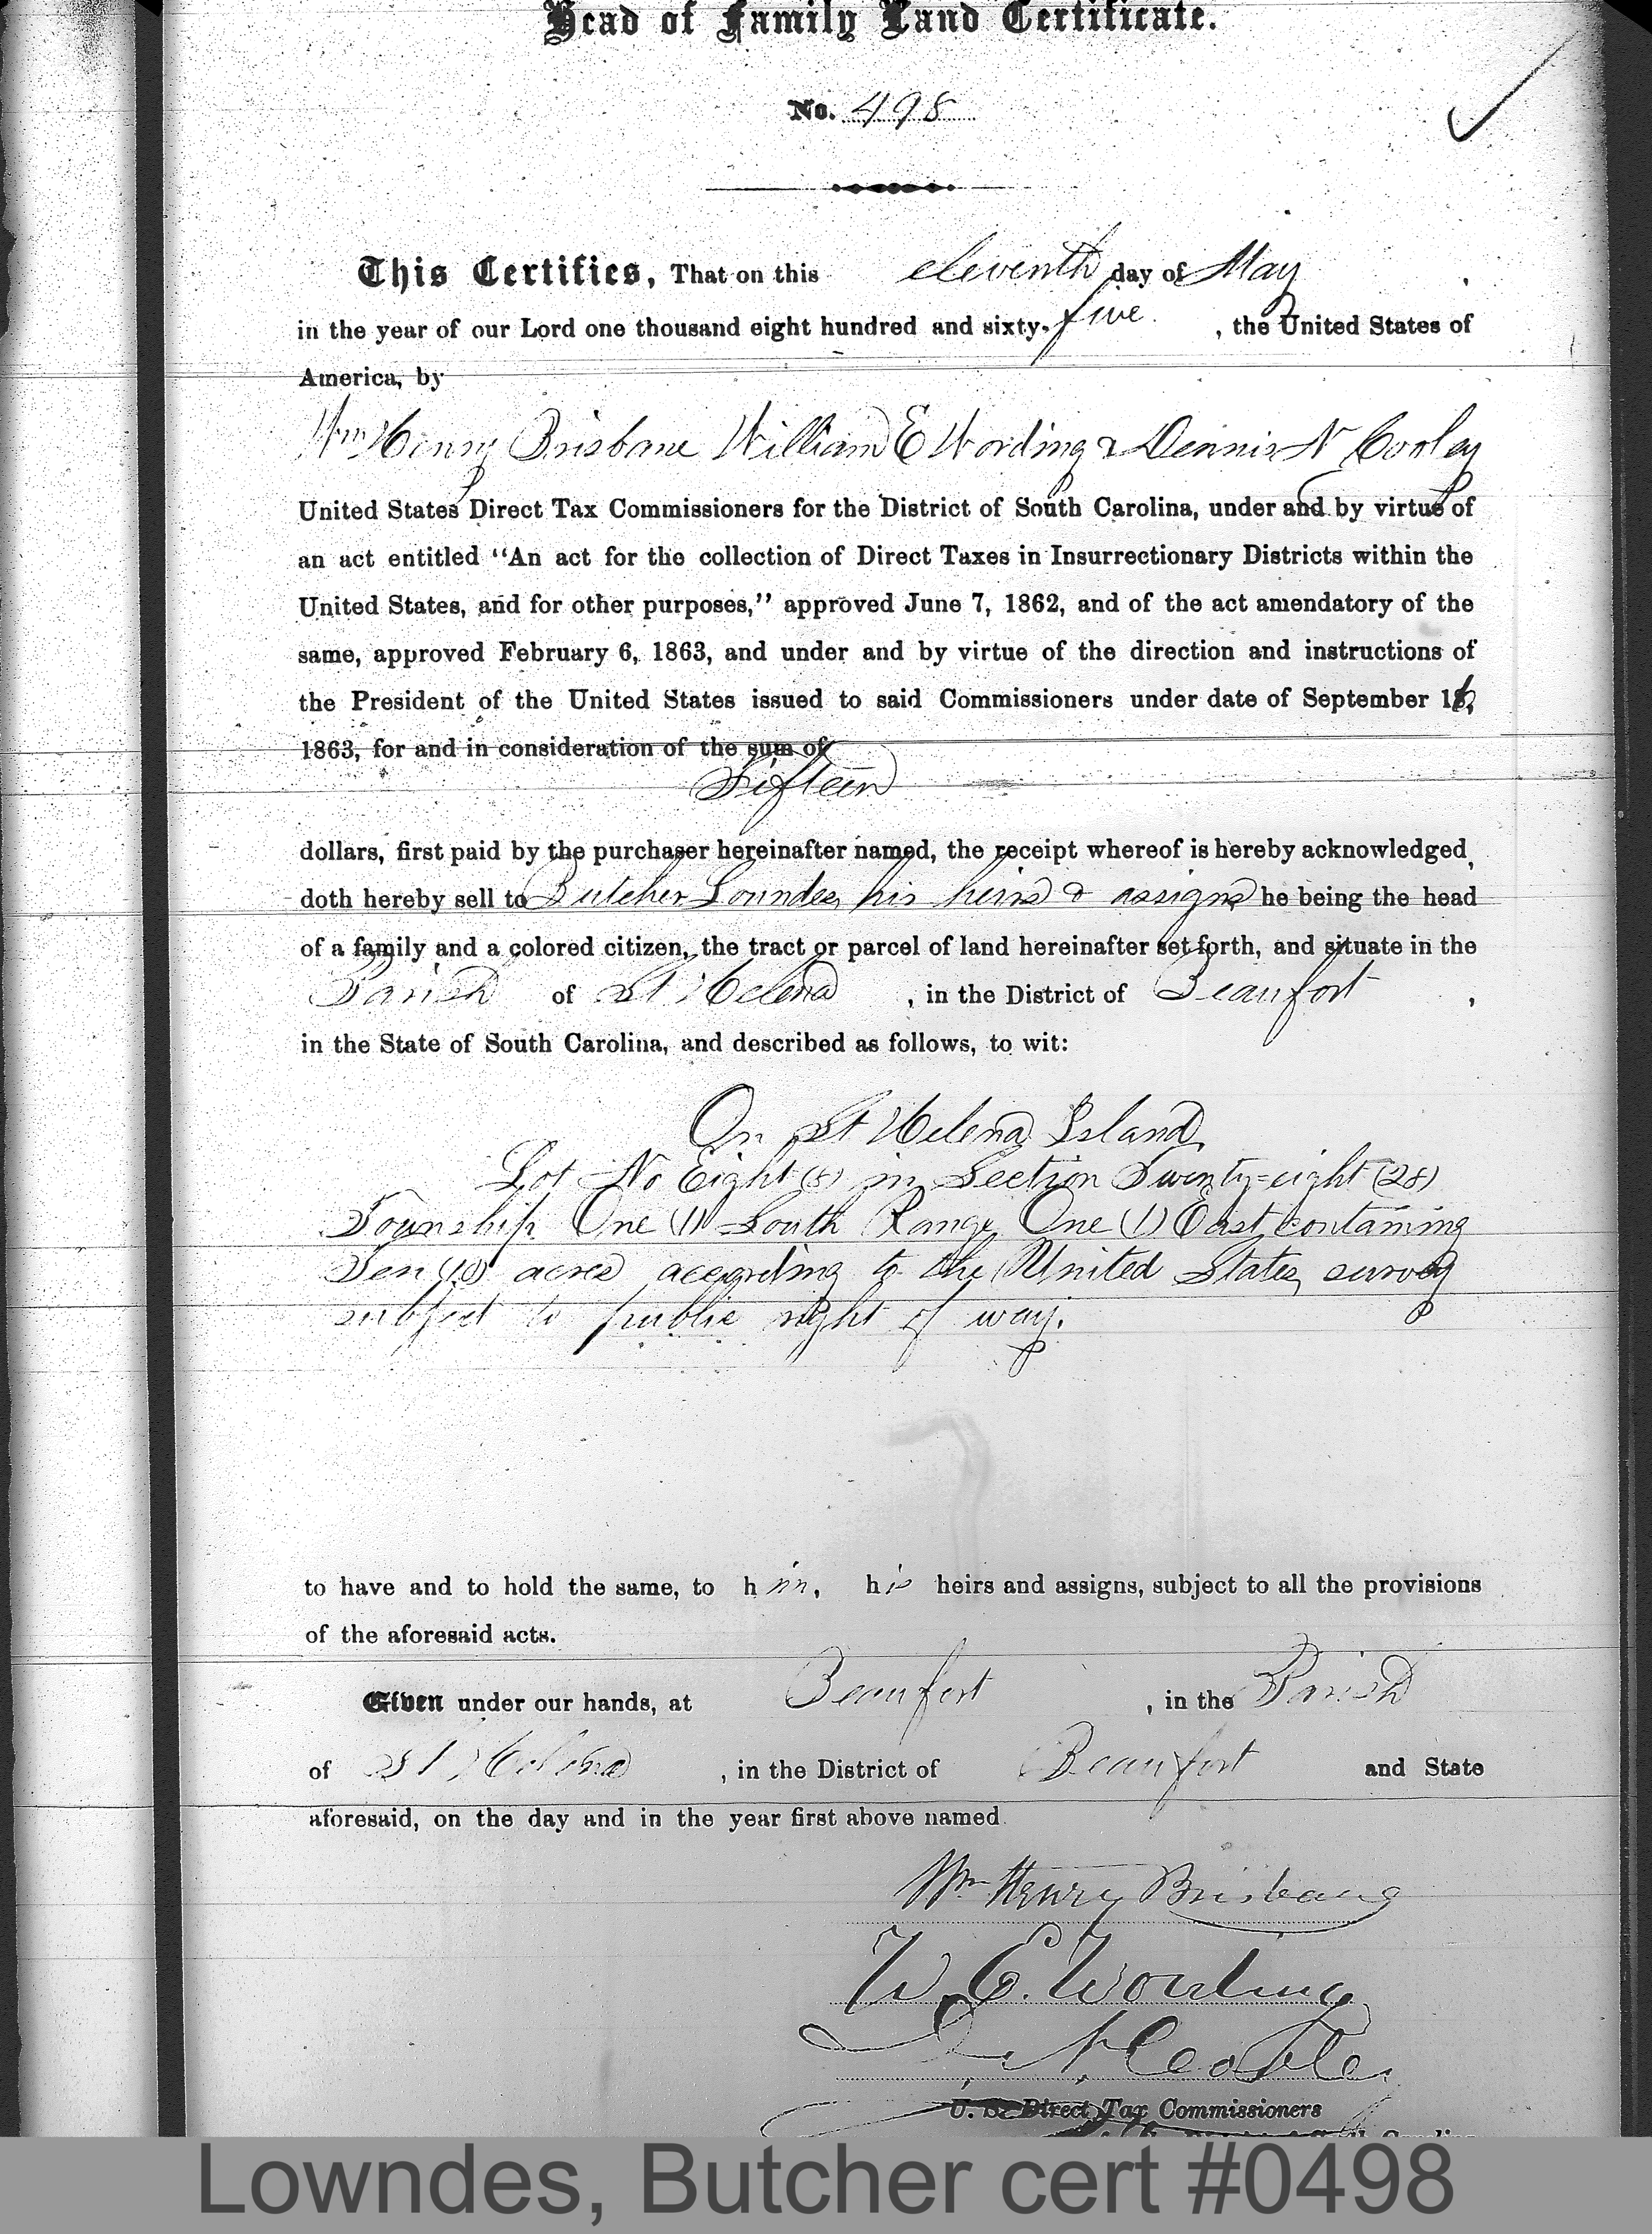 Head of Family Land Certificate.
No. 498
This Certifies, That on this eleventh day of May
in the year of our Lord one thousand eight hundred and sixty-five. , the United States of
America, by
Wm Henry Brisbane William E Wording & Dennis N Cooley
United States Direct Tax Commissioners for the District of South Carolina, under and by virtue of
an act entitled "An act for the collection of Direct Taxes in Insurrectionary Districts within the
United States, and for other purposes," approved June 7, 1862, and of the act amendatory of the
same, approved February 6, 1863, and under and by virtue of the direction and instructions of
the President of the United States issued to said Commissioners under date of September 16,
1863, for and in consideration of the sum of
Fifteen
dollars, first paid by the purchaser hereinafter named, the receipt whereof is hereby acknowledged,
doth hereby sell to Butcher Lowndes, his heirs & assigns he being the head
of a family and a colored citizen, the tract or parcel of land hereinafter set forth, and situate in the
Parish of St Helena , in the District of Beaufort ,
in the State of South Carolina, and described as follows, to wit:
On St Helena Island,
Lot No Eight (8) in Section Twenty-eight (28)
Township One (1) South Range One (1) East containing
Ten (10) acres according to the United States survey
subject to public right of way.
to have and to hold the same, to him, his heirs and assigns, subject to all the provisions
of the aforesaid acts.
Given under our hands, at Beaufort , in the Parish
of St Helena , in the District of Beaufort and State
aforesaid, on the day and in the year first above named.
Wm Henry Brisbane
W. E. Wording
D. N. Cooley
U. S. Direct Tax Commissioners
Lowndes, Butcher cert #0498